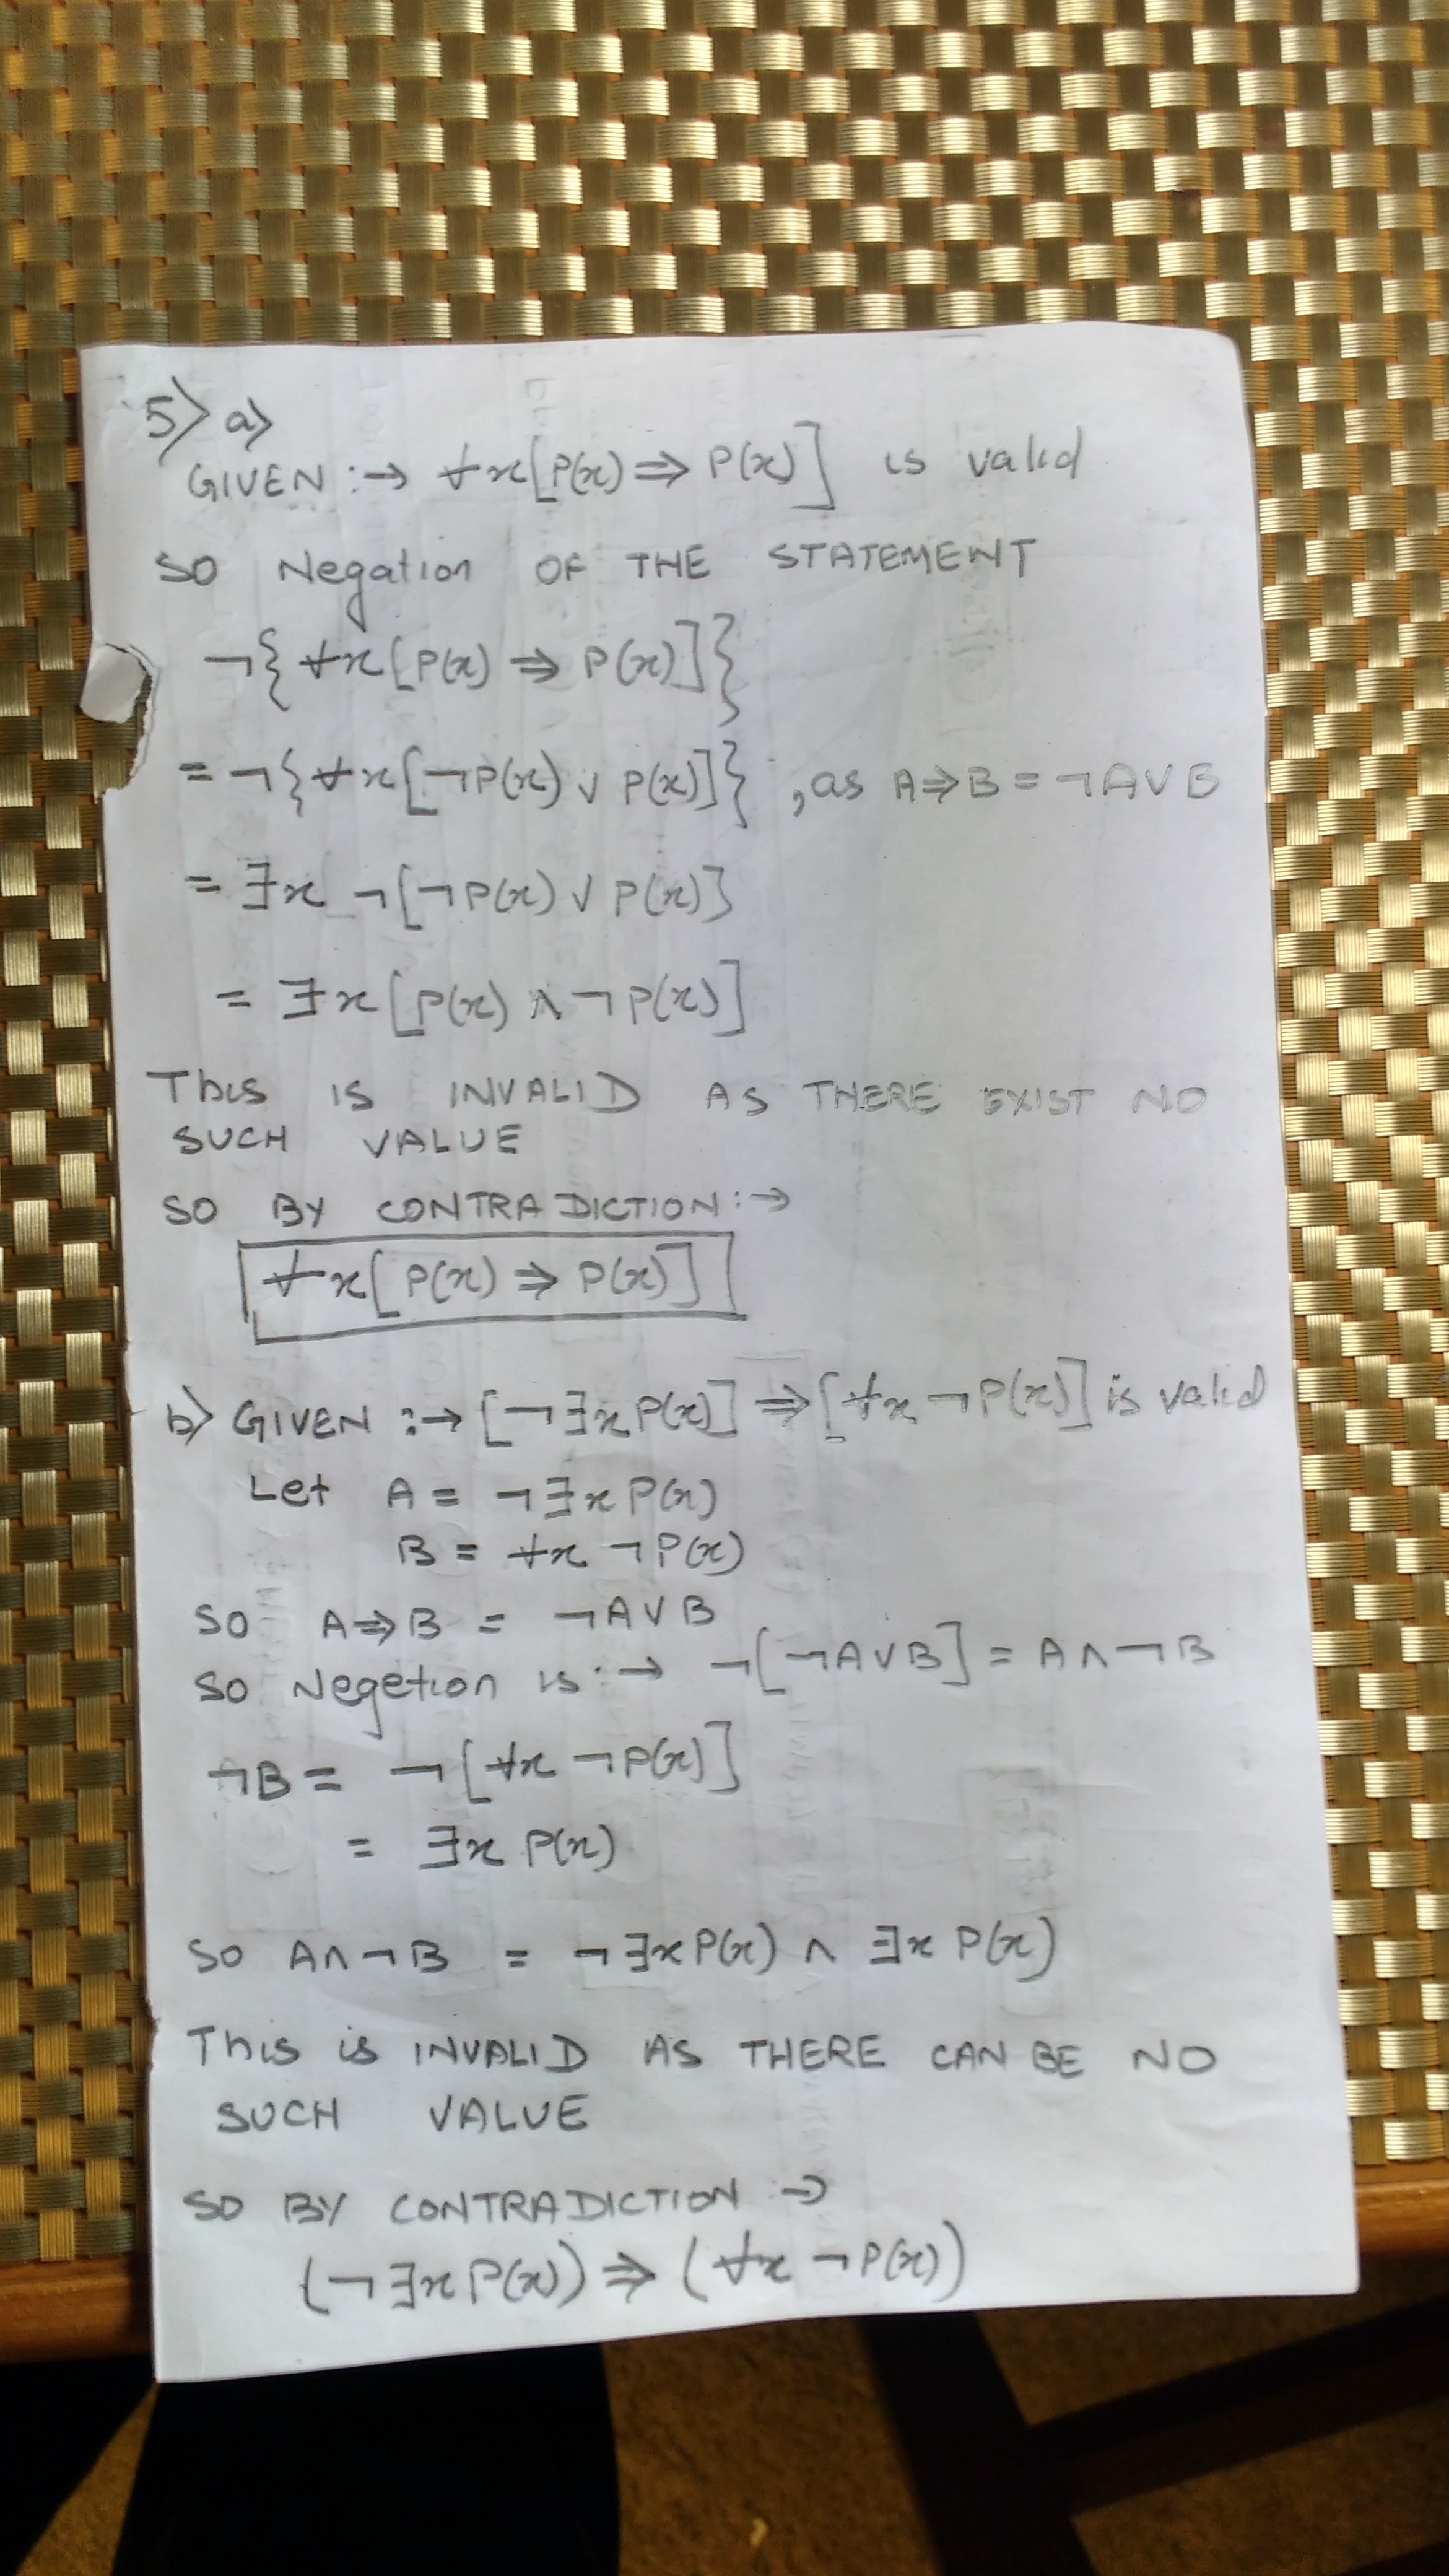 5> a>
GIVEN :→ ∀x[P(x) ⇒ P(x)] is valid
SO Negation OF THE STATEMENT
¬{∀x[P(x) ⇒ P(x)]}
= ¬{∀x[¬P(x) ∨ P(x)]} , as A⇒B = ¬A∨B
= ∃x ¬[¬P(x) ∨ P(x)}
= ∃x[P(x) ∧ ¬P(x)]
This IS INVALID AS THERE EXIST NO
SUCH VALUE
SO BY CONTRADICTION :→
∀x[P(x) ⇒ P(x)]
b> GIVEN :→ [¬∃x P(x)] ⇒ [∀x ¬P(x)] is valid
Let A = ¬∃x P(x)
B = ∀x ¬P(x)
SO A⇒B = ¬A∨B
SO Negetion is :→ ¬[¬A∨B] = A∧¬B
¬B = ¬[∀x ¬P(x)]
= ∃x P(x)
SO A∧¬B = ¬∃x P(x) ∧ ∃x P(x)
This is INVALID AS THERE CAN BE NO
SUCH VALUE
SO BY CONTRADICTION :→
(¬∃x P(x)) ⇒ (∀x ¬P(x))